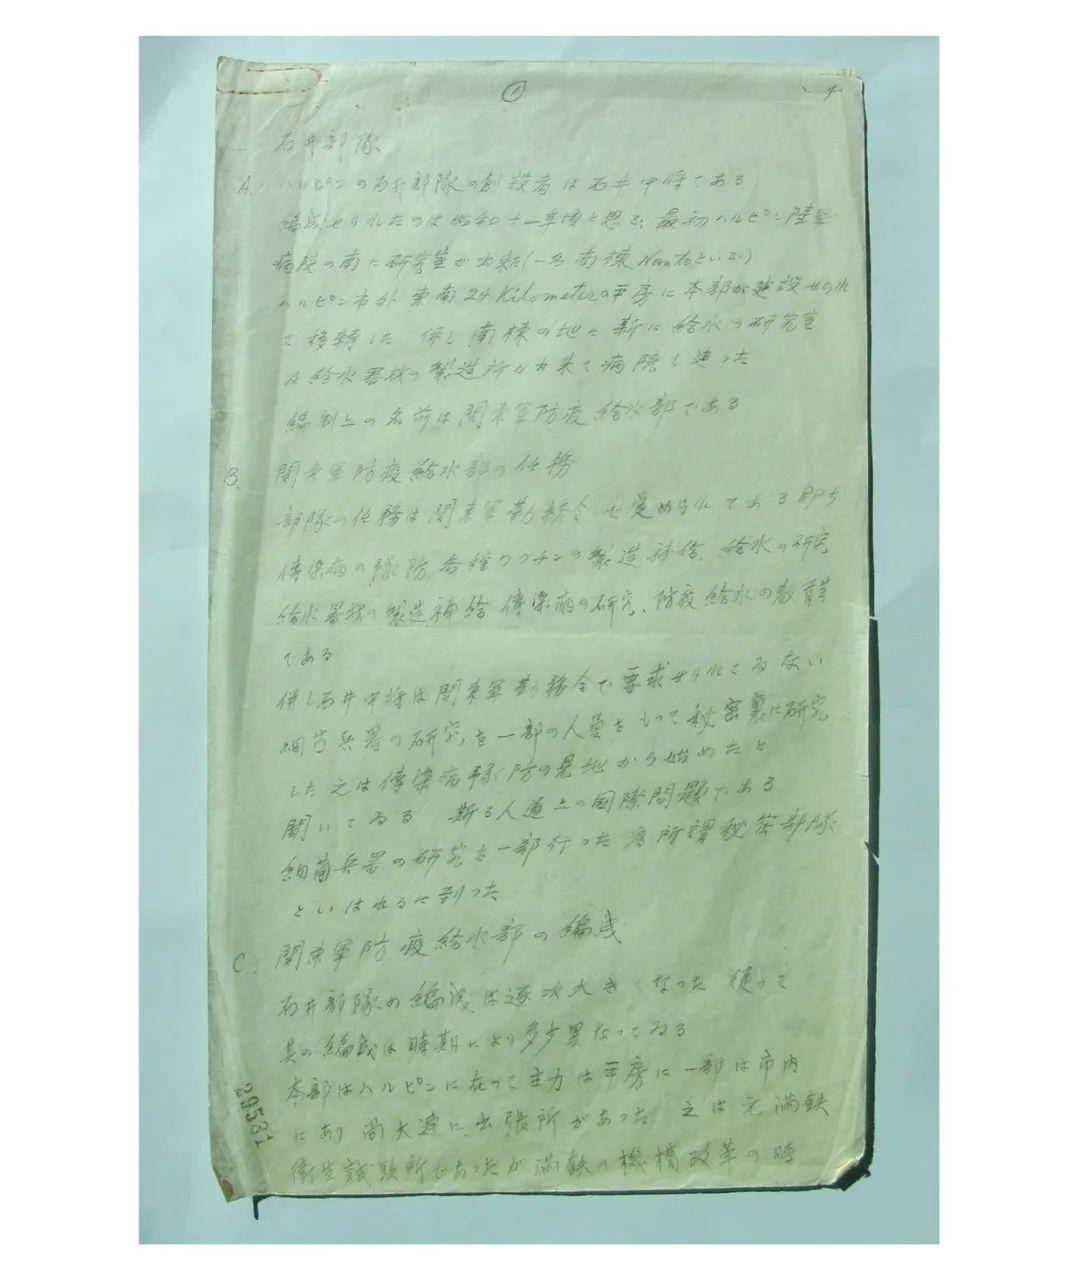 ①
石井部隊
A. ハルピンの石井部隊の創設者は石井中将である
編成せられたのは昭和十一年頃と思ふ 最初ハルピン陸軍
病院の南に研究室が出来た(一名南棟 といふ)
ハルピン市外東南24 Kilometerの平房に本部が建設せられ
て移転した 併し南棟の地に新に給水の研究室
及給水器材の製造所が出来て病院も建った
編制上の名前は関東軍防疫給水部である
B. 関東軍防疫給水部の任務
部隊の任務は関東軍勤務令で定められてある即ち
傳染病の豫防、各種ワクチンの製造補給、給水の研究
給水器材の製造補給 傳染病の研究、防疫給水の教育等
である
併し石井中将は関東軍勤務令で要求せられてゐない
細菌兵器の研究を一部の人員をもって秘密裏に研究
した 之は傳染病豫防の見地から始めたと
聞いてゐる 斯る人道上の国際問題である
細菌兵器の研究を一部行った為所謂秘密部隊
といはれるに到った
C. 関東軍防疫給水部の編成
石井部隊の編成は逐次大きくなった 従って
其の編成は時期により多少異なってゐる
本部はハルピンに在って主力は平房に一部は市内
にあり尚大連に出張所があった 之は元満鉄
衛生試験所であったが満鉄の機構改革の時
29531